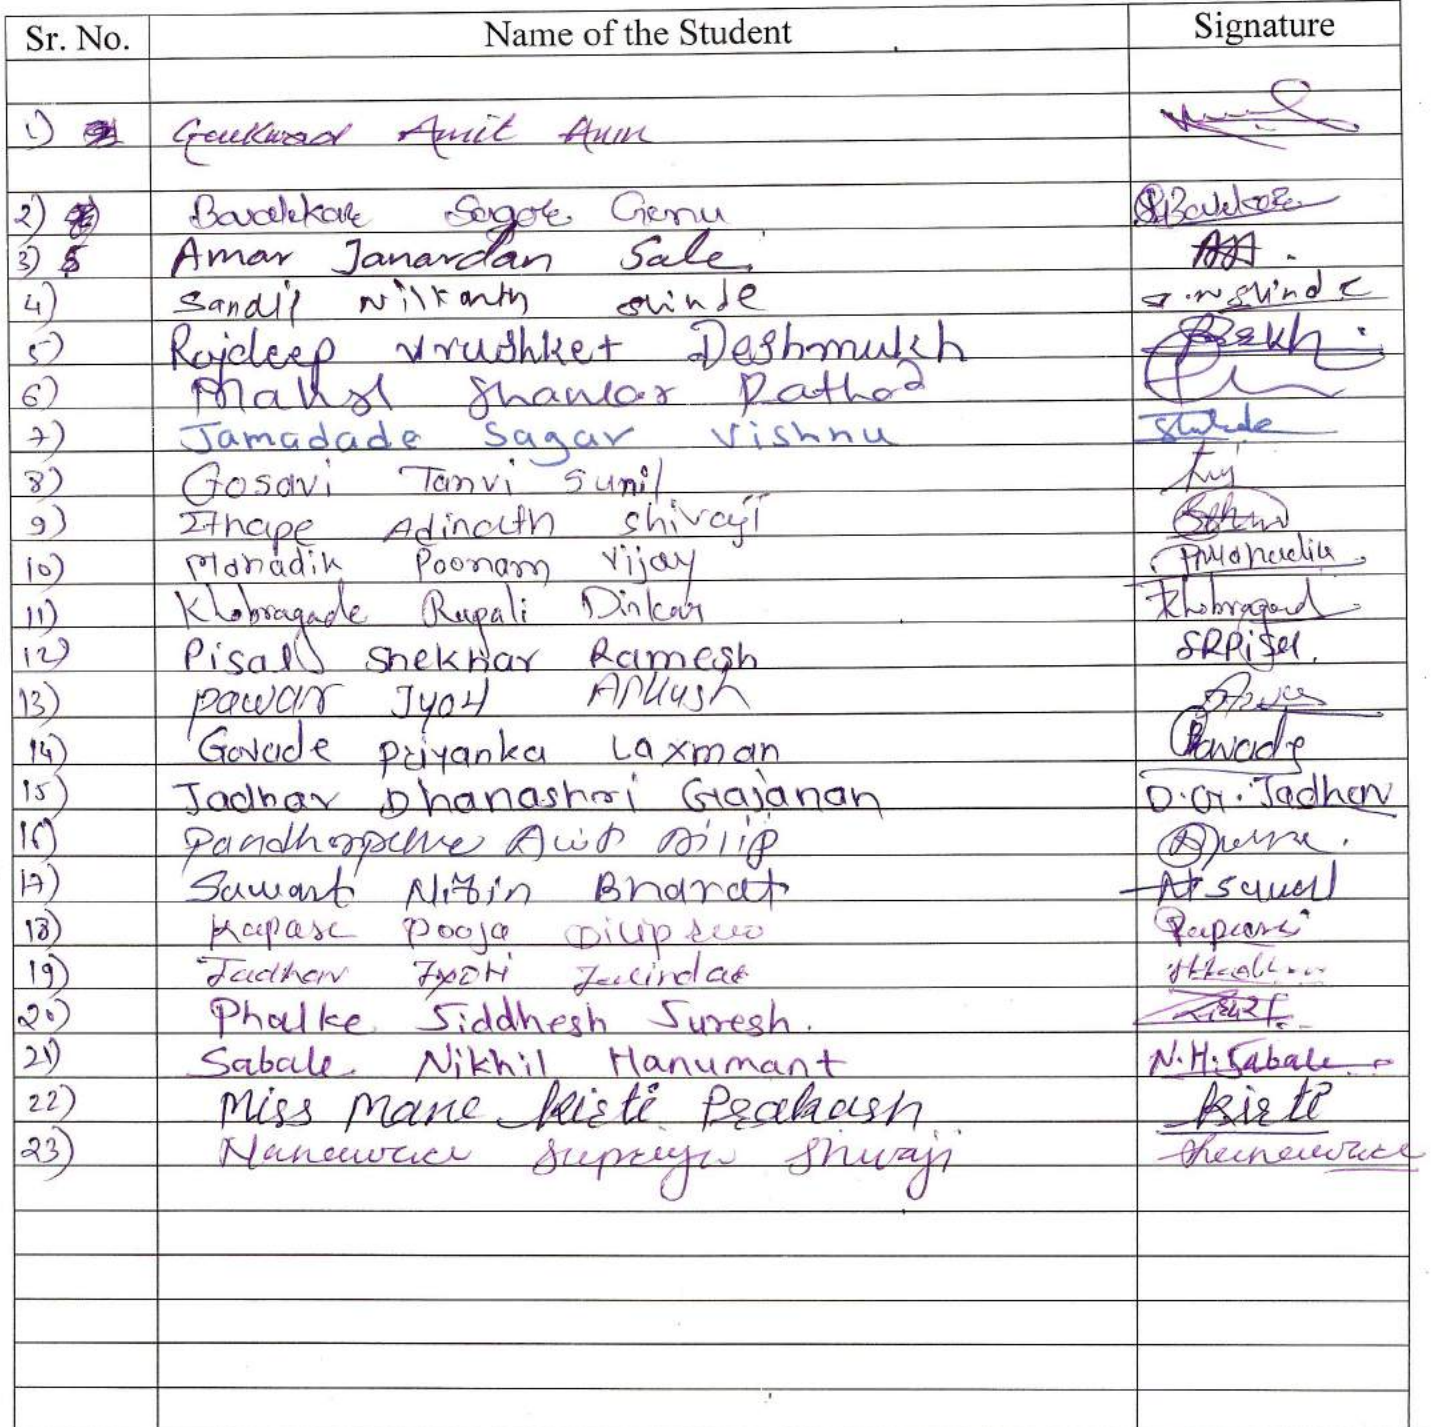 Sr. No. Name of the Student Signature
1) Gaikwad Amit
2) Sagar Genu
3) Amar Janardan Sale. AJS.
4) Sandip Nilkanth shinde s.n shinde
5) Rajdeep Vrushket Deshmukh
6) Shankar Rathod
7) Jamadade Sagar Vishnu
8) Gosavi Tanvi Sunil
9) Ithape Adinath Shivaji
10) Mahadik Poonam Vijay PMahadik
11) Khobragade Rupali Dinkar Khobragad
12) Pisal Shekhar Ramesh SRPisal.
13) Pawar Jyoti Ankush
14) Gavade Priyanka Laxman
15) Jadhav Dhanashri Gajanan D.G. Jadhav
16) Dilip
17) Sawant Nitin Bharat
18) Kapase Pooja Diliprao
19) Jadhav Jyoti Jalindar
20) Phalke Siddhesh Suresh.
21) Sabale Nikhil Hanumant N.H.Sabale
22) Miss Mane Kirti Prakash Kirti
23) Nanaware Supriya Shivaji